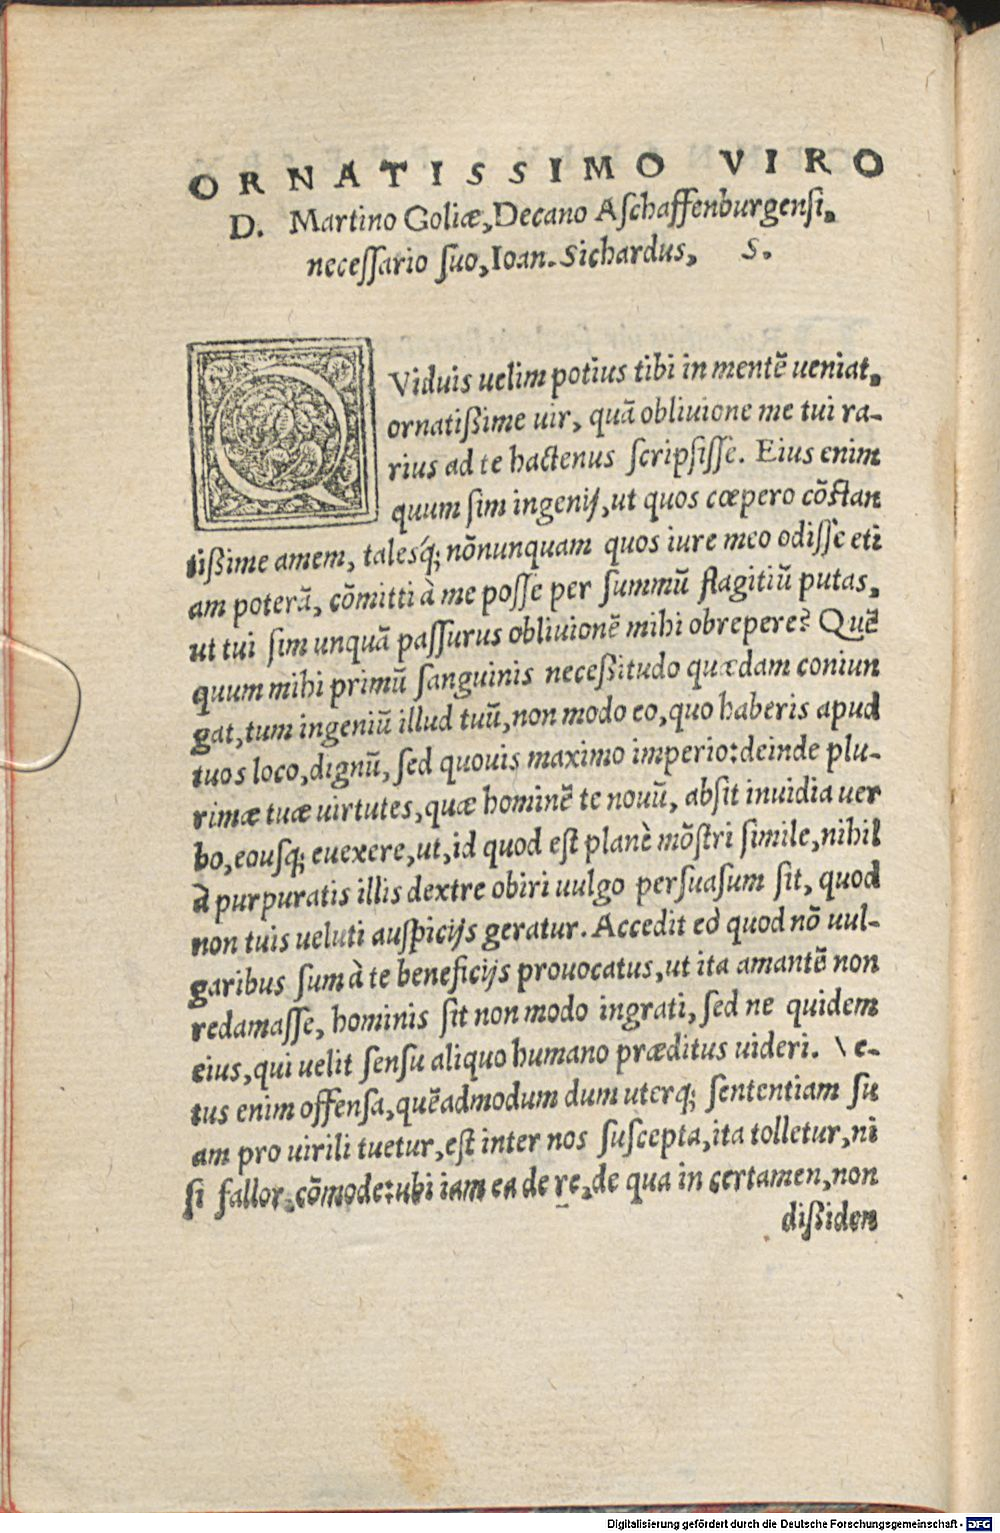 ORNATISSIMO VIRO
D. Martino Goliæ, Decano Aſchaffenburgenſi,
neceſſario ſuo, Ioan. Sichardus, S.
QViduis uelim potius tibi in mentē ueniat,
ornatißime uir, quā obliuione me tui ra-
rius ad te hactenus ſcripſiſſe. Eius enim
quum ſim ingenij, ut quos cœpero cōſtan
tißime amem, talesq́; nōnunquam quos iure meo odiſſe eti
am poterā, cōmitti à me poſſe per ſummū flagitiū putas,
ut tui ſim unquā paſſurus obliuionē mihi obrepere? Quē
quum mihi primū ſanguinis neceßitudo quædam coniun
gat, tum ingeniū illud tuū, non modo eo, quo haberis apud
tuos loco, dignū, ſed quouis maximo imperio: deinde plu-
rimæ tuæ uirtutes, quæ hominē te nouū, abſit inuidia uer
bo, eouſq; euexere, ut, id quod eſt planè mōſtri ſimile, nihil
à purpuratis illis dextre obiri uulgo perſuaſum ſit, quod
non tuis ueluti auſpicijs geratur. Accedit eò quod nō uul-
garibus ſum à te beneficijs prouocatus, ut ita amantē non
redamaſſe, hominis ſit non modo ingrati, ſed ne quidem
eius, qui uelit ſenſu aliquo humano præditus uideri. \ e-
tus enim offenſa, quēadmodum dum uterq; ſententiam ſu
am pro uirili tuetur, eſt inter nos ſuſcepta, ita tolletur, ni
ſi fallor, cōmode: ubi iam ea de re, de qua in certamen, non
dißiden
Digitalisierung gefördert durch die Deutsche Forschungsgemeinschaft - DFG